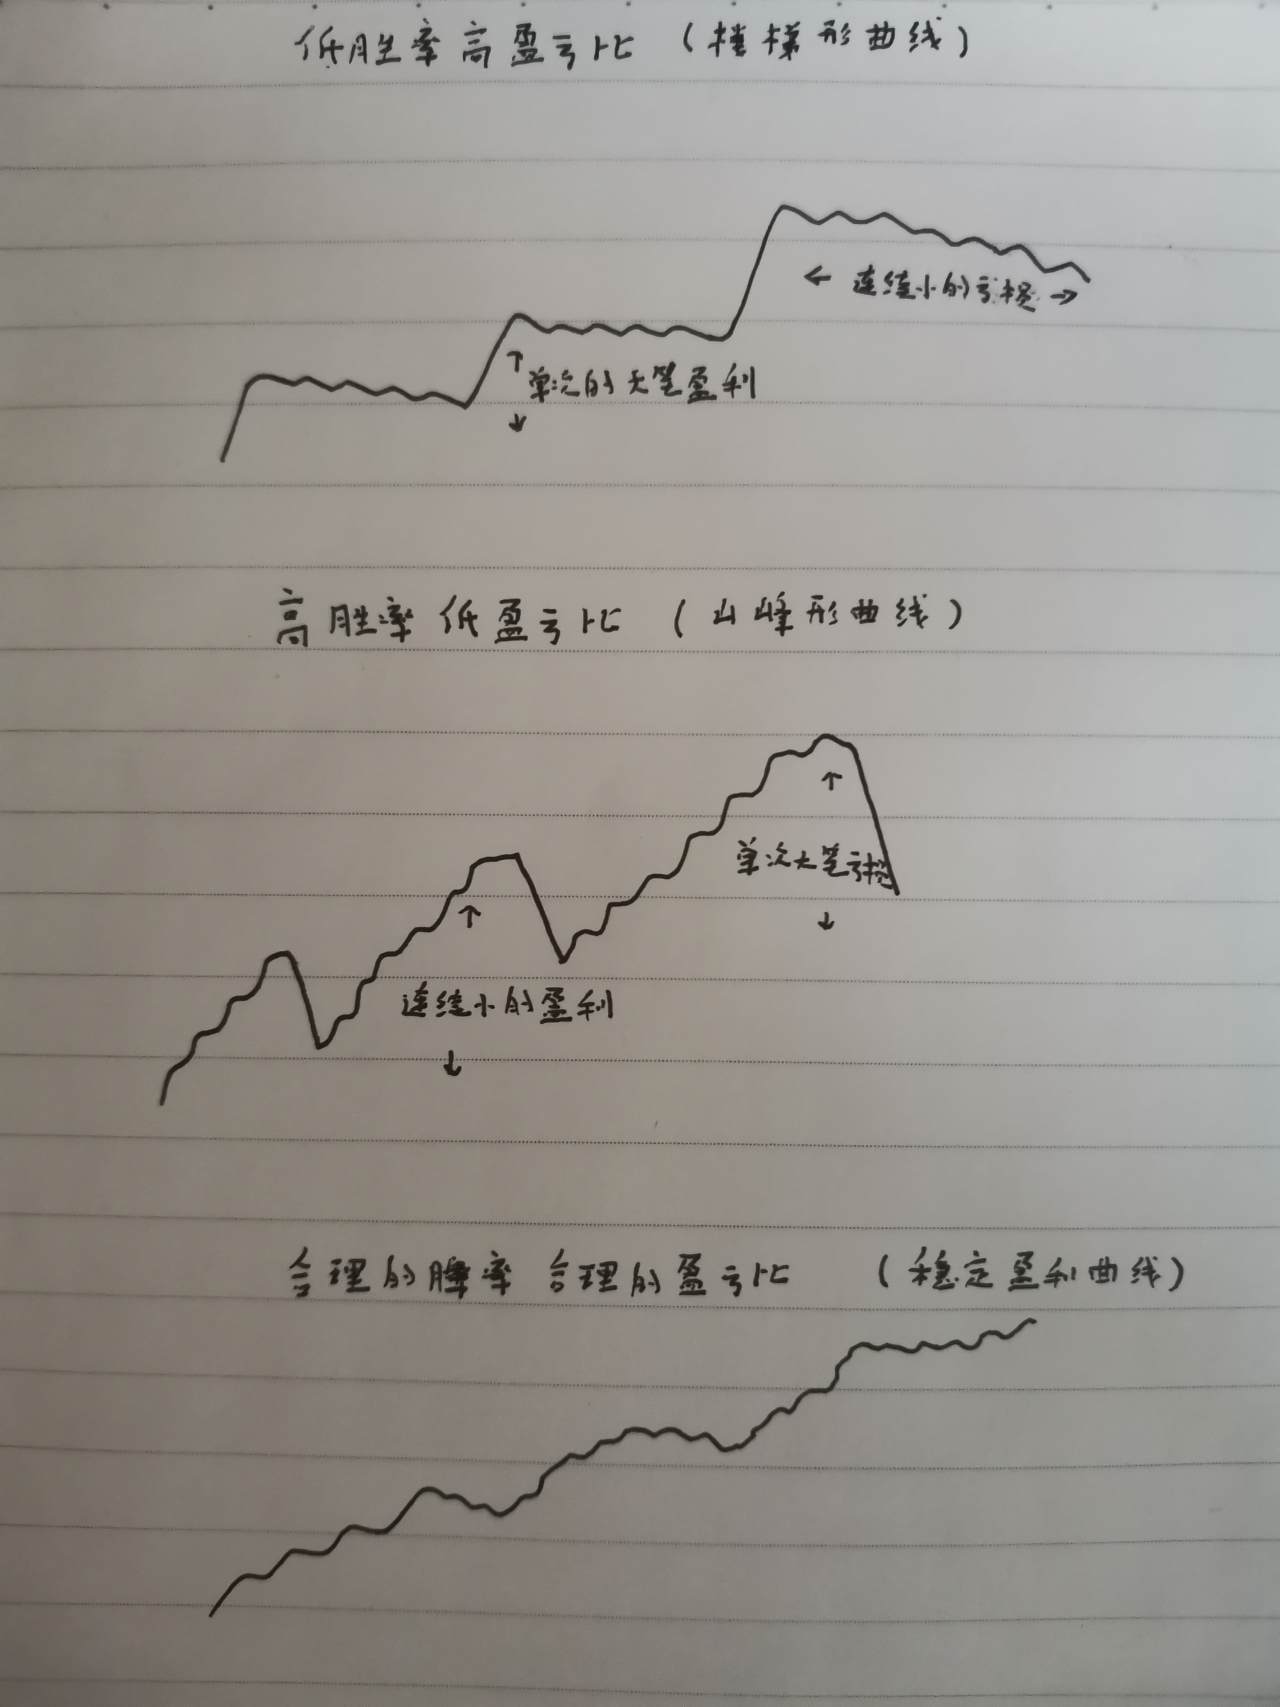 低胜率高盈亏比（楼梯形曲线）
← 连续小的亏损 →
↑
单次的大笔盈利
↓
高胜率低盈亏比（山峰形曲线）
↑
单次大笔亏损
↓
↑
连续小的盈利
↓
合理的胜率 合理的盈亏比 （稳定盈利曲线）